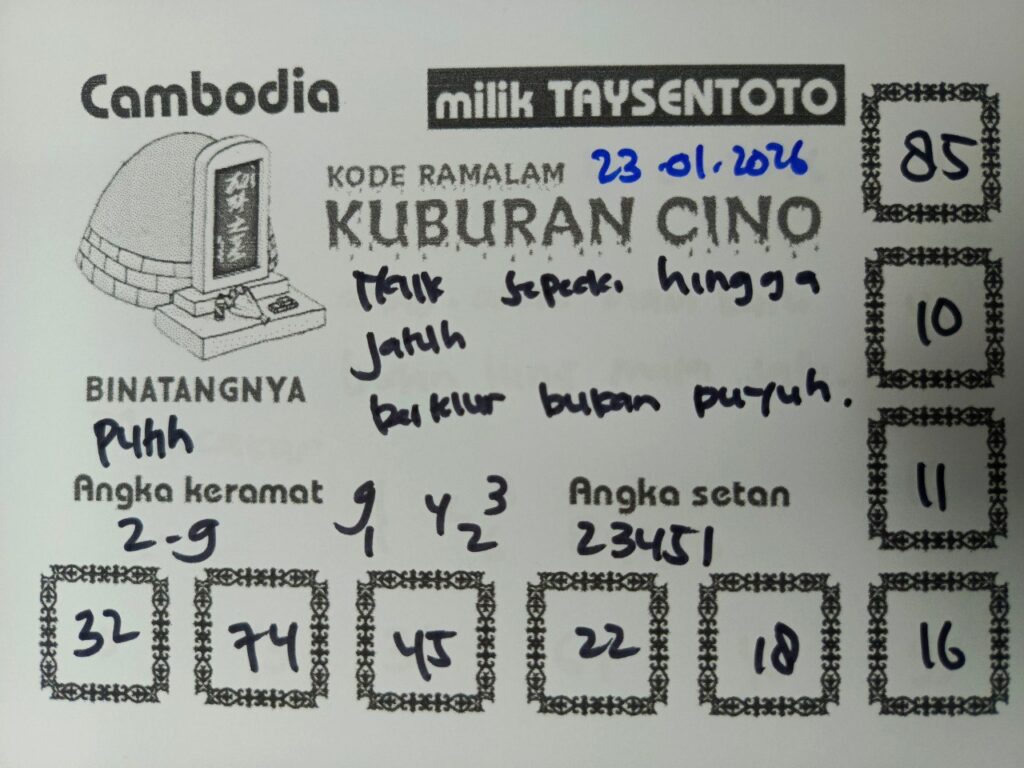 Cambodia
milik TAYSENTOTO
KODE RAMALAM 23.01.2026
KUBURAN CINO
hingga
jatuh
bertelur bukan puyuh.
BINATANGNYA
Putih
Angka keramat
2-9
9 1 4 2 3
Angka setan
23451
85
10
11
32 74 45 22 18 16